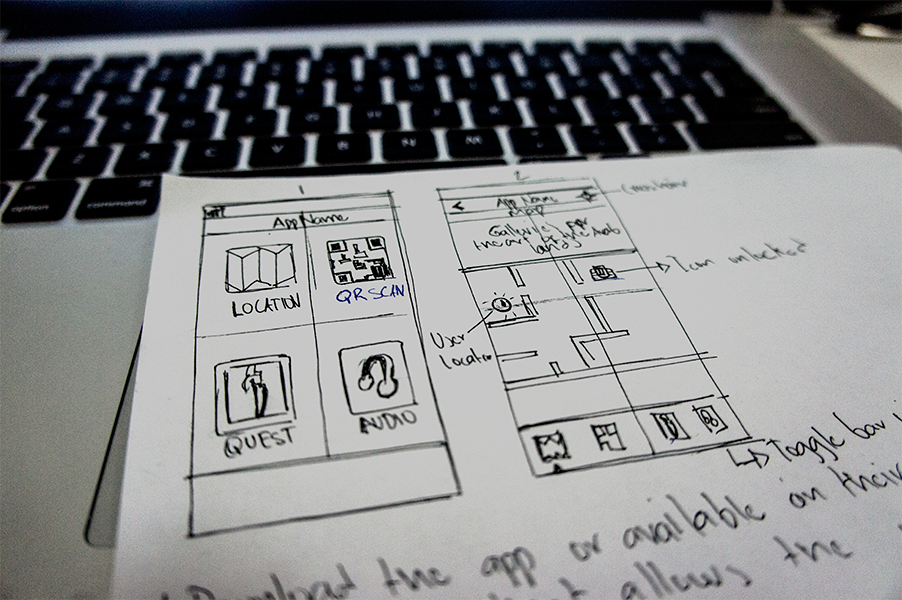 option
command
Z X C V B N M
1
App Name
LOCATION
QR SCAN
QUEST
AUDIO
2
< App Name
Map
Galleries for
the art of the Arab
lands
Icon unlocked
User
Location
Toggle bar
Download the app or available on their
allows the